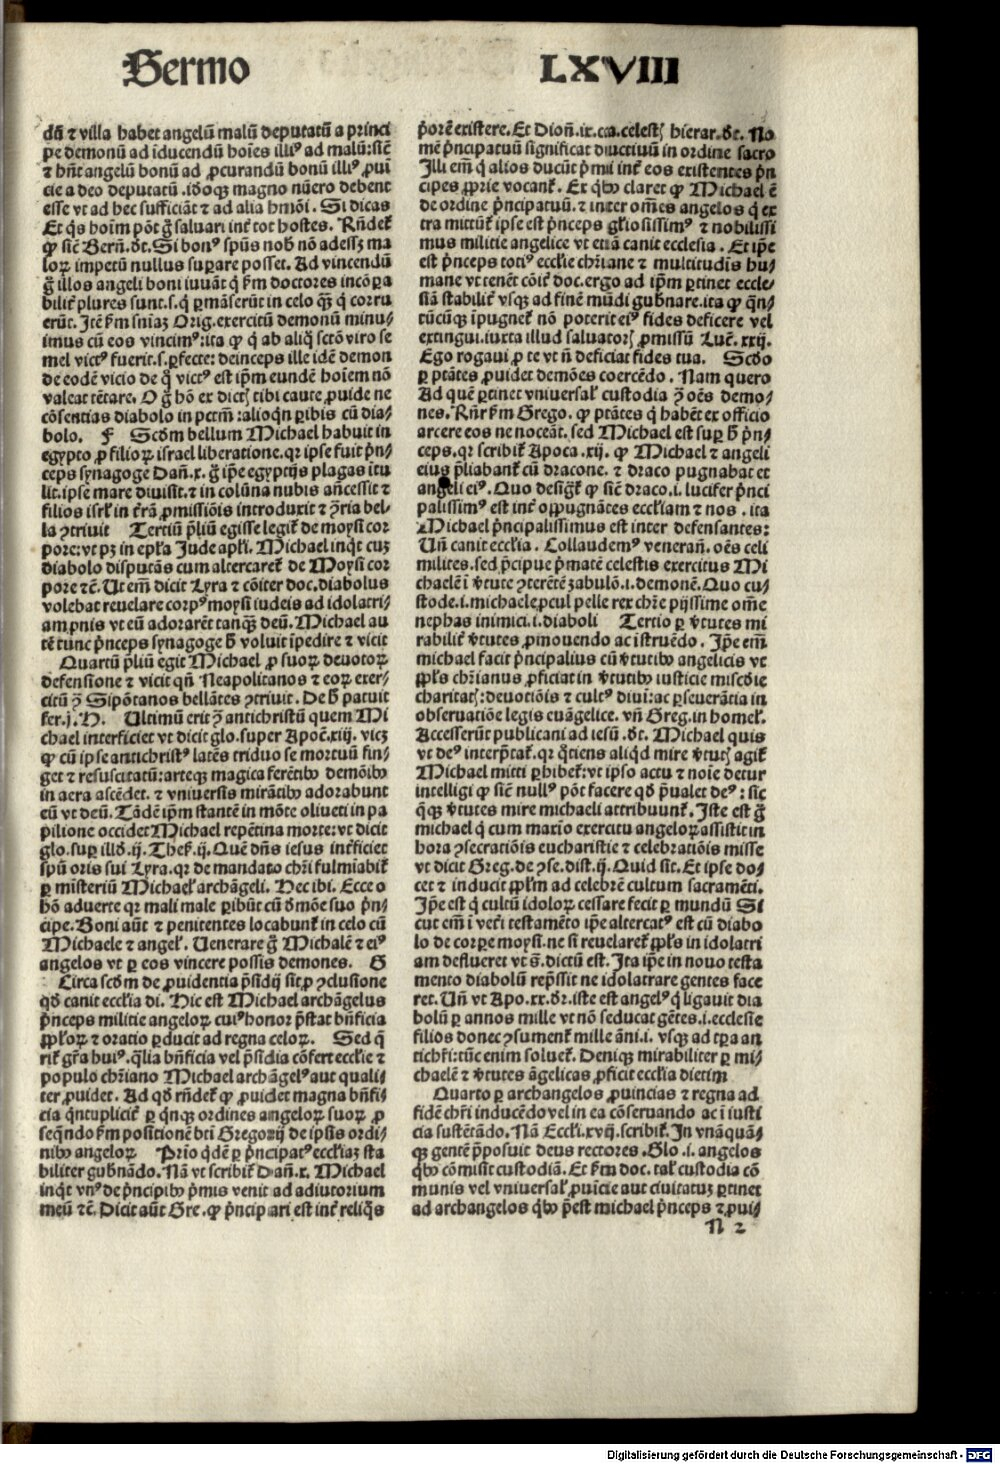 Sermo LXVIII
dū ⁊ villa habet angelū malū deputatū a princi
pe demonū ad īducendū hoīes illiꝰ ad malū:sicē
⁊ hn̄t angelū bonū ad ꝓcurandū bonū illiꝰ ꝓuī
cie a deo deputatū .idoqꝫ magno nūero debent
esse vt ad hec sufficiāt ⁊ ad alia hmōi . Si dicas
Et qͥs hoīm pōt g̊ saluari int̄ tot hostes . Rn̄det̄
ꝙ sic̄ Bern̄.dt. Si bonꝰ spūs nob̄ nō adess̄ ma
loꝝ impetū nullus suꝑare posset. Ad vincendū
g̊ illos angeli boni iuuāt qͥ ẜm doctores incōꝑa
bilit̄ plures sunt.s.qͥ ꝑmāserūt in celo qͣꝫ qͥ corru
erūt. Itē ẜm sn̄iaꝫ Orig.exercitū demonū minu/
imus cū eos vincimꝰ:ita ꝙ qͥ ab aliqͦ sctō viro se
mel victꝰ fuerit.s.ꝑfecte: deinceps ille idē demon
de eodē vicio de qͦ victꝰ est ip̄m eundē hoīem nō
valeat tētare. O g̊ hō ex dict̄ tibi caute ꝓuide ne
cōsentias diabolo in pctm̄ :alioqn̄ ꝑibis cū dia/
bolo. F Scd̄m bellum Michael habuit in
egypto ꝓ filioꝝ israel liberatione.qr ipse fuit pͥn/
ceps synagoge Dan̄.x. g̊ ip̄e egyptijs plagas ītu
lit.ipse mare diuisit.⁊ in colūna nubis an̄cessit ⁊
filios isrl̄ in tr̄ā ꝓmissiōis introduxit ⁊ ꝯria bel/
la ꝯtriuit Tertiū p̄liū egisse legit̄ de moysi cor
pore:vt pꝫ in ep̄la Jude apl̄i. Michael inqͥt cuꝫ
diabolo disputās cum altercaret̄ de Moysi cor
pore ⁊c̄. Ut em̄ dicit Lyra ⁊ cōiter doc.diabolus
volebat reuelare corpꝰ moysi iudeis ad idolatri/
am.pnis vt eū adorarēt tanqͣꝫ deū. Michael au
tē tunc pͥnceps synagoge h̄ voluit īpedire ⁊ vicit
Quartū p̄liū egit Michael ꝓ suoꝝ deuotoꝝ
defensione ⁊ vicit qn̄ Neapolitanos ⁊ eoꝝ exer/
citū ꝯ Sipōtanos bellātes ꝯtriuit. De h̄ patuit
ser.j. H. Ultimū erit ꝯ antichristū quem Mi
chael interficiet vt dicit glo.super Apoc̄.xiij. vicꝫ
ꝙ cū ipse antichristꝰ latēs triduo se mortuū fin/
get ⁊ resuscitatū:arteqꝫ magica ferētibꝰ demōibꝰ
in aera ascēdet. ⁊ vniuersis mirātibꝰ adorabunt
eū vt deū. Tādē ip̄m stantē in mōte oliueti in pa
pilione occidet Michael repētina morte: vt dicit
glo.suꝑ illd̄.ij. Thes̄.ij. Quē dn̄s iesus int̄ficiet
spū oris sui Lyra.qr de mandato chr̄i fulmīabit̄
ꝑ misteriū Michael̄ archāgeli. Hec ibi. Ecce o
hō aduerte qr mali male ꝑibūt cū dmōe suo pͥn/
cipe. Boni aūt ⁊ penitentes locabunt̄ in celo cū
Michaele ⁊ angel̄. Venerare g̊ Michalē ⁊ eiꝰ
angelos vt ꝑ eos vincere possis demones. G
Circa scd̄m de ꝓuidentia p̄sidij sit.ꝓ ꝯclusione
qd̄ canit eccl̄ia di. Hic est Michael archāgelus
pͥnceps militie angeloꝝ cuiꝰ honor p̄stat bn̄ficia
ppl̄oꝝ ⁊ oratio ꝑducit ad regna celoꝝ. Sed qͣ
rit̄ gr̄a huiꝰ.qͣlia bn̄ficia vel p̄sidia cōfert eccl̄ie ⁊
populo chr̄iano Michael archāgelꝰ aut quali/
ter ꝓuidet. Ad qd̄ rn̄det̄ ꝙ ꝓuidet magna bn̄fi/
cia qͥntuplicit̄ ꝑ qͥnqꝫ ordines angeloꝝ suoꝝ ꝓ
seqͣndo ẜm positionē bt̄i Gregorij de ipsis ordi/
nibꝰ angeloꝝ Prīo qͥdē ꝑ pͥncipatꝰ eccl̄iaꝫ sta
biliter gub̄nādo. Nā vt scribit̄ Dan̄.x. Michael
inqͥt vnꝰ de pͥncipibꝰ pͥmis venit ad adiutorium
meū ⁊c̄. Dicit aūt Gre. ꝙ pͥncipari est int̄ reliqͦs
pͥorē existere. Et Dion̄.ix.ca.celest̄ hierar.dt. No
mē pͥncipatuū significat ductiuū in ordine sacro
Illi em̄ qͥ alios ducūt pͥmi int̄ eos existentes pͥn
cipes ꝓprie vocant̄. Ex qͥbꝰ claret ꝙ Michael ē
de ordine pͥncipatuū. ⁊ inter om̄es angelos qͥ ex
tra mittūt̄ ipse est pͥnceps gl̄iosissimꝰ ⁊ nobilissi
mus militie angelice vt etiā canit ecclesia . Et ip̄e
est pͥnceps totiꝰ eccl̄ie chr̄iane ⁊ multitudis hu/
mane vt tenēt cōit̄ doc.ergo ad ip̄m ꝑtinet eccle/
siā stabilit̄ vsqꝫ ad finē mūdi gub̄nare.ita ꝙ qͣn/
tūcūqꝫ īpugnet̄ nō poterit eiꝰ fides deficere vel
extingui.iuxta illud saluatorꝭ ꝓmissū Luc̄. xxij.
Ego rogaui ꝓ te vt n̄ deficiat fides tua. Scdo
ꝑ ptātes ꝓuidet demōes coercēdo . Nam quero
Ad quē ꝑtinet vniuersal̄ custodia ꝯ oēs demo/
nes. Rn̄r ẜm Grego. ꝙ ptātes qͥ habēt ex officio
arcere eos ne noceāt.sed Michael est suꝑ h̄ pͥn/
ceps.qr scribit̄ Apoca .xij. ꝙ Michael ⁊ angeli
eius p̄liabant̄ cū dracone. ⁊ draco pugnabat et
angeli eiꝰ. Quo desigt̄ ꝙ sic̄ draco.i. lucifer pͥnci
palissimꝰ est int̄ oppugnātes eccl̄iam ⁊ nos . ita
Michael pͥncipalissimus est inter defensantes:
Un̄ canit eccl̄ia. Collaudemꝰ veneran̄. oēs celi
milites.sed pͥcipue pͥmatē celestis exercitus Mi
chaelē ī v̄tute ꝯterētē zabulō.i.demonē. Quo cu/
stode.i.michaele ꝓcul pelle rex chr̄e pijssime om̄e
nephas inimici.i.diaboli Tertio ꝑ v̄tutes mi
rabilit̄ v̄tutes ꝓmouendo ac īstruēdo. Ip̄e em̄
michael facit pͥncipalius cū v̄tutibꝰ angelicis vt
ppl̄s chr̄ianus ꝓficiat in v̄tutibꝰ iusticie misc̄die
charitat̄: deuotiōis ⁊ cultꝰ diui: ac ꝑseuerātia in
obseruatiōe legis euāgelice. vn̄ Greg.in homel̄.
Accesserūt publicani ad iesū .dt. Michael quis
vt deꝰ interp̄tat̄.qr qͦtiens aliqͥd mire v̄tutꝭ agit̄
Michael mitti ꝑhibet̄:vt ipso actu ⁊ noīe detur
intelligi ꝙ sic̄ nullꝰ pōt facere qd̄ p̄ualet deꝰ: sic
qͥqꝫ v̄tutes mire michaeli attribuunt̄. Iste est g̊
michael qͥ cum maxīo exercitu angeloꝝ assistit in
hora ꝯsecratiōis eucharistie ⁊ celebratiōis misse
vt dicit Greg.de ꝯse.dist.ij. Quid sit. Et ipse do/
cet ⁊ inducit ppl̄m ad celebrē cultum sacramēti.
Ip̄e est qͥ cultū idoloꝝ cessare fecit ꝑ mundū Si
cut em̄ ī vet̄i testamēto ip̄e altercatꝰ est cū diabo
lo de corꝑe moysi.ne si reuelaret̄ ppl̄s in idolatri
am deflueret vt s̄.dictū est. Ita ip̄e in nouo testa
mento diabolū rep̄ssit ne idolatrare gentes face
ret. Un̄ vt Apo.xx.dr̄.iste est angelꝰ qͥ ligauit dia
bolū ꝑ annos mille vt nō seducat gētes.i.ecclesie
filios donec ꝯsument̄ mille āni.i. vsqꝫ ad tꝑa an
tichr̄i:tūc enim soluet̄. Deniqꝫ mirabiliter ꝑ mi/
chaelē ⁊ v̄tutes āgelicas ꝓficit eccl̄ia dietim
Quarto ꝑ archangelos ꝓuincias ⁊ regna ad
fidē chr̄i inducēdo vel in ea cōseruando ac ī iusti
cia sustētādo. Nā Eccl̄i.xvij.scribit̄. In vnāquā/
qꝫ gentē p̄posuit deus rectores. Glo .i. angelos
qͥbꝰ cōmisit custodiā. Et ẜm doc. tal̄ custodia cō
munis vel vniuersal̄ ꝓuīcie aut ciuitatuꝫ ꝑtinet
ad archangelos qͥbꝰ p̄est michael pͥnceps ⁊ ꝓui/
N 2
Digitalisierung gefördert durch die Deutsche Forschungsgemeinschaft - DFG